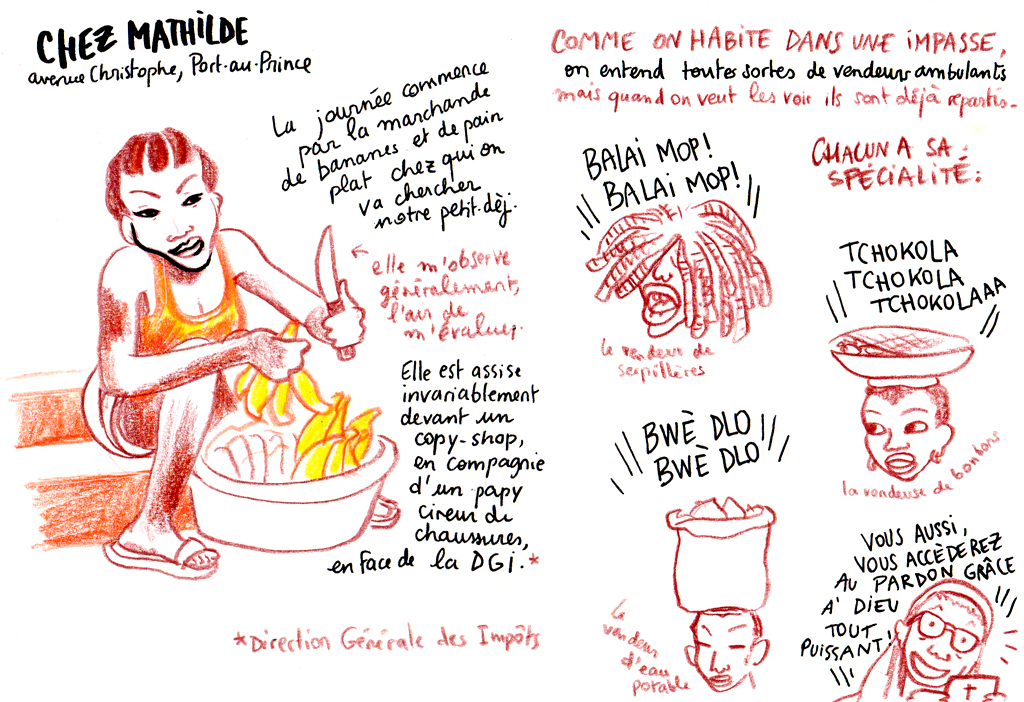 CHEZ MATHILDE
avenue Christophe, Port-au-Prince
La journée commence
par la marchande
de bananes et de pain
plat chez qui on
va chercher
notre petit-dèj.
elle m'observe
généralement,
l'air de
m'évaluer.
Elle est assise
invariablement
devant un
copy-shop,
en compagnie
d'un papy
cireur de
chaussures,
en face de la DGI.*
*Direction Générale des Impôts
COMME ON HABITE DANS UNE IMPASSE,
on entend toutes sortes de vendeurs ambulants
mais quand on veut les voir ils sont déjà repartis.
CHACUN A SA
SPÉCIALITÉ:
BALAI MOP!
BALAI MOP!
le vendeur de
serpillères
TCHOKOLA
TCHOKOLA
TCHOKOLAAA
la vendeuse de bonbons
BWÈ DLO
BWÈ DLO
le
vendeur
d'eau
potable
VOUS AUSSI,
VOUS ACCÉDEREZ
AU PARDON GRÂCE
A' DIEU
TOUT
PUISSANT!